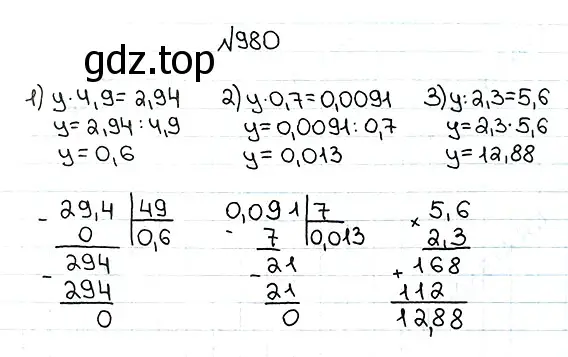 №980
gdz.top
1) y·4,9=2,94
y=2,94:4,9
y=0,6
2) y·0,7=0,0091
y=0,0091:0,7
y=0,013
3) y:2,3=5,6
y=2,3·5,6
y=12,88
- 29,4 | 49
0 | 0,6
- 294
294
0
0,091 | 7
- 7 | 0,013
- 21
21
0
× 5,6
2,3
+ 168
112
12,88